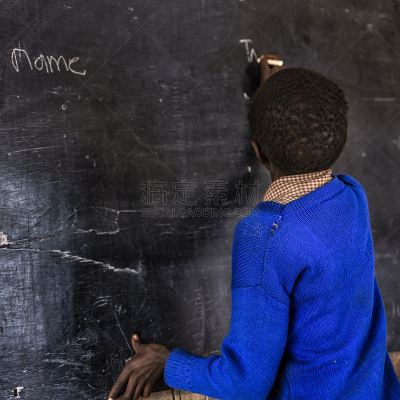 name
稿定素材
SUCAI.GAODING.COM